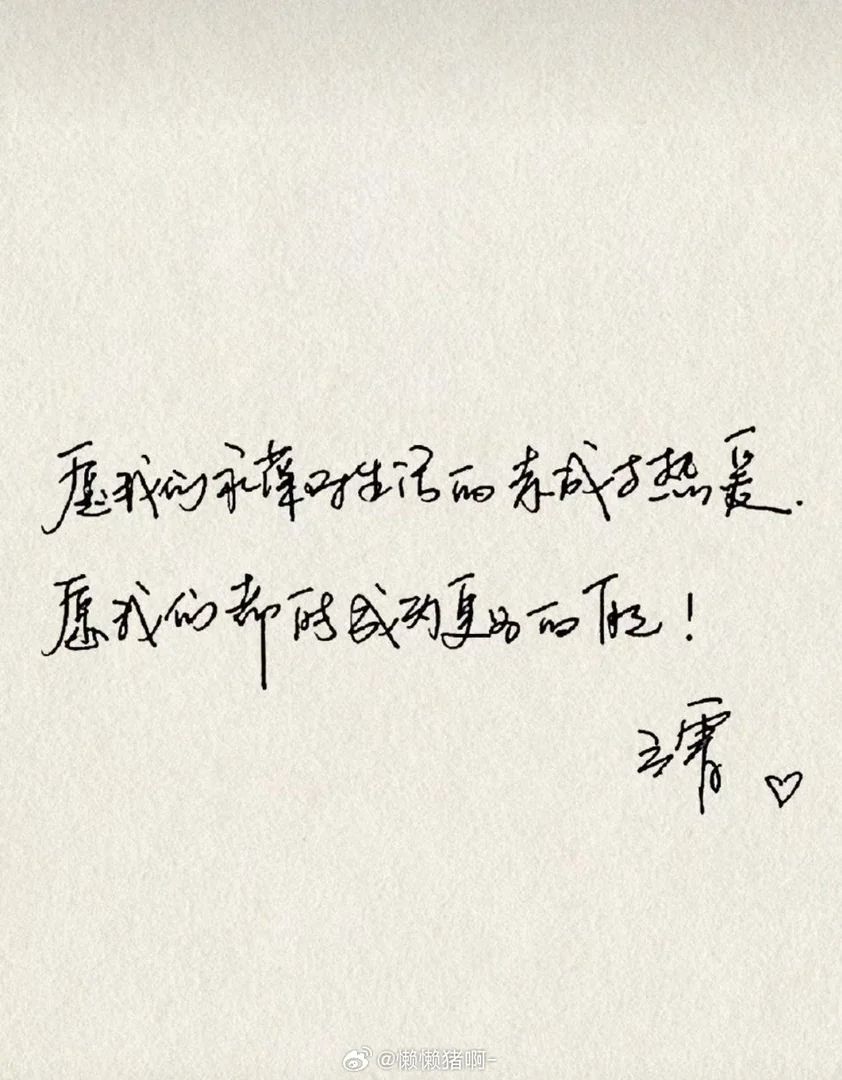 愿我们永葆对生活的赤诚与热爱.
愿我们都能成为更好的自己!
云霄♡
@懒懒猪啊-